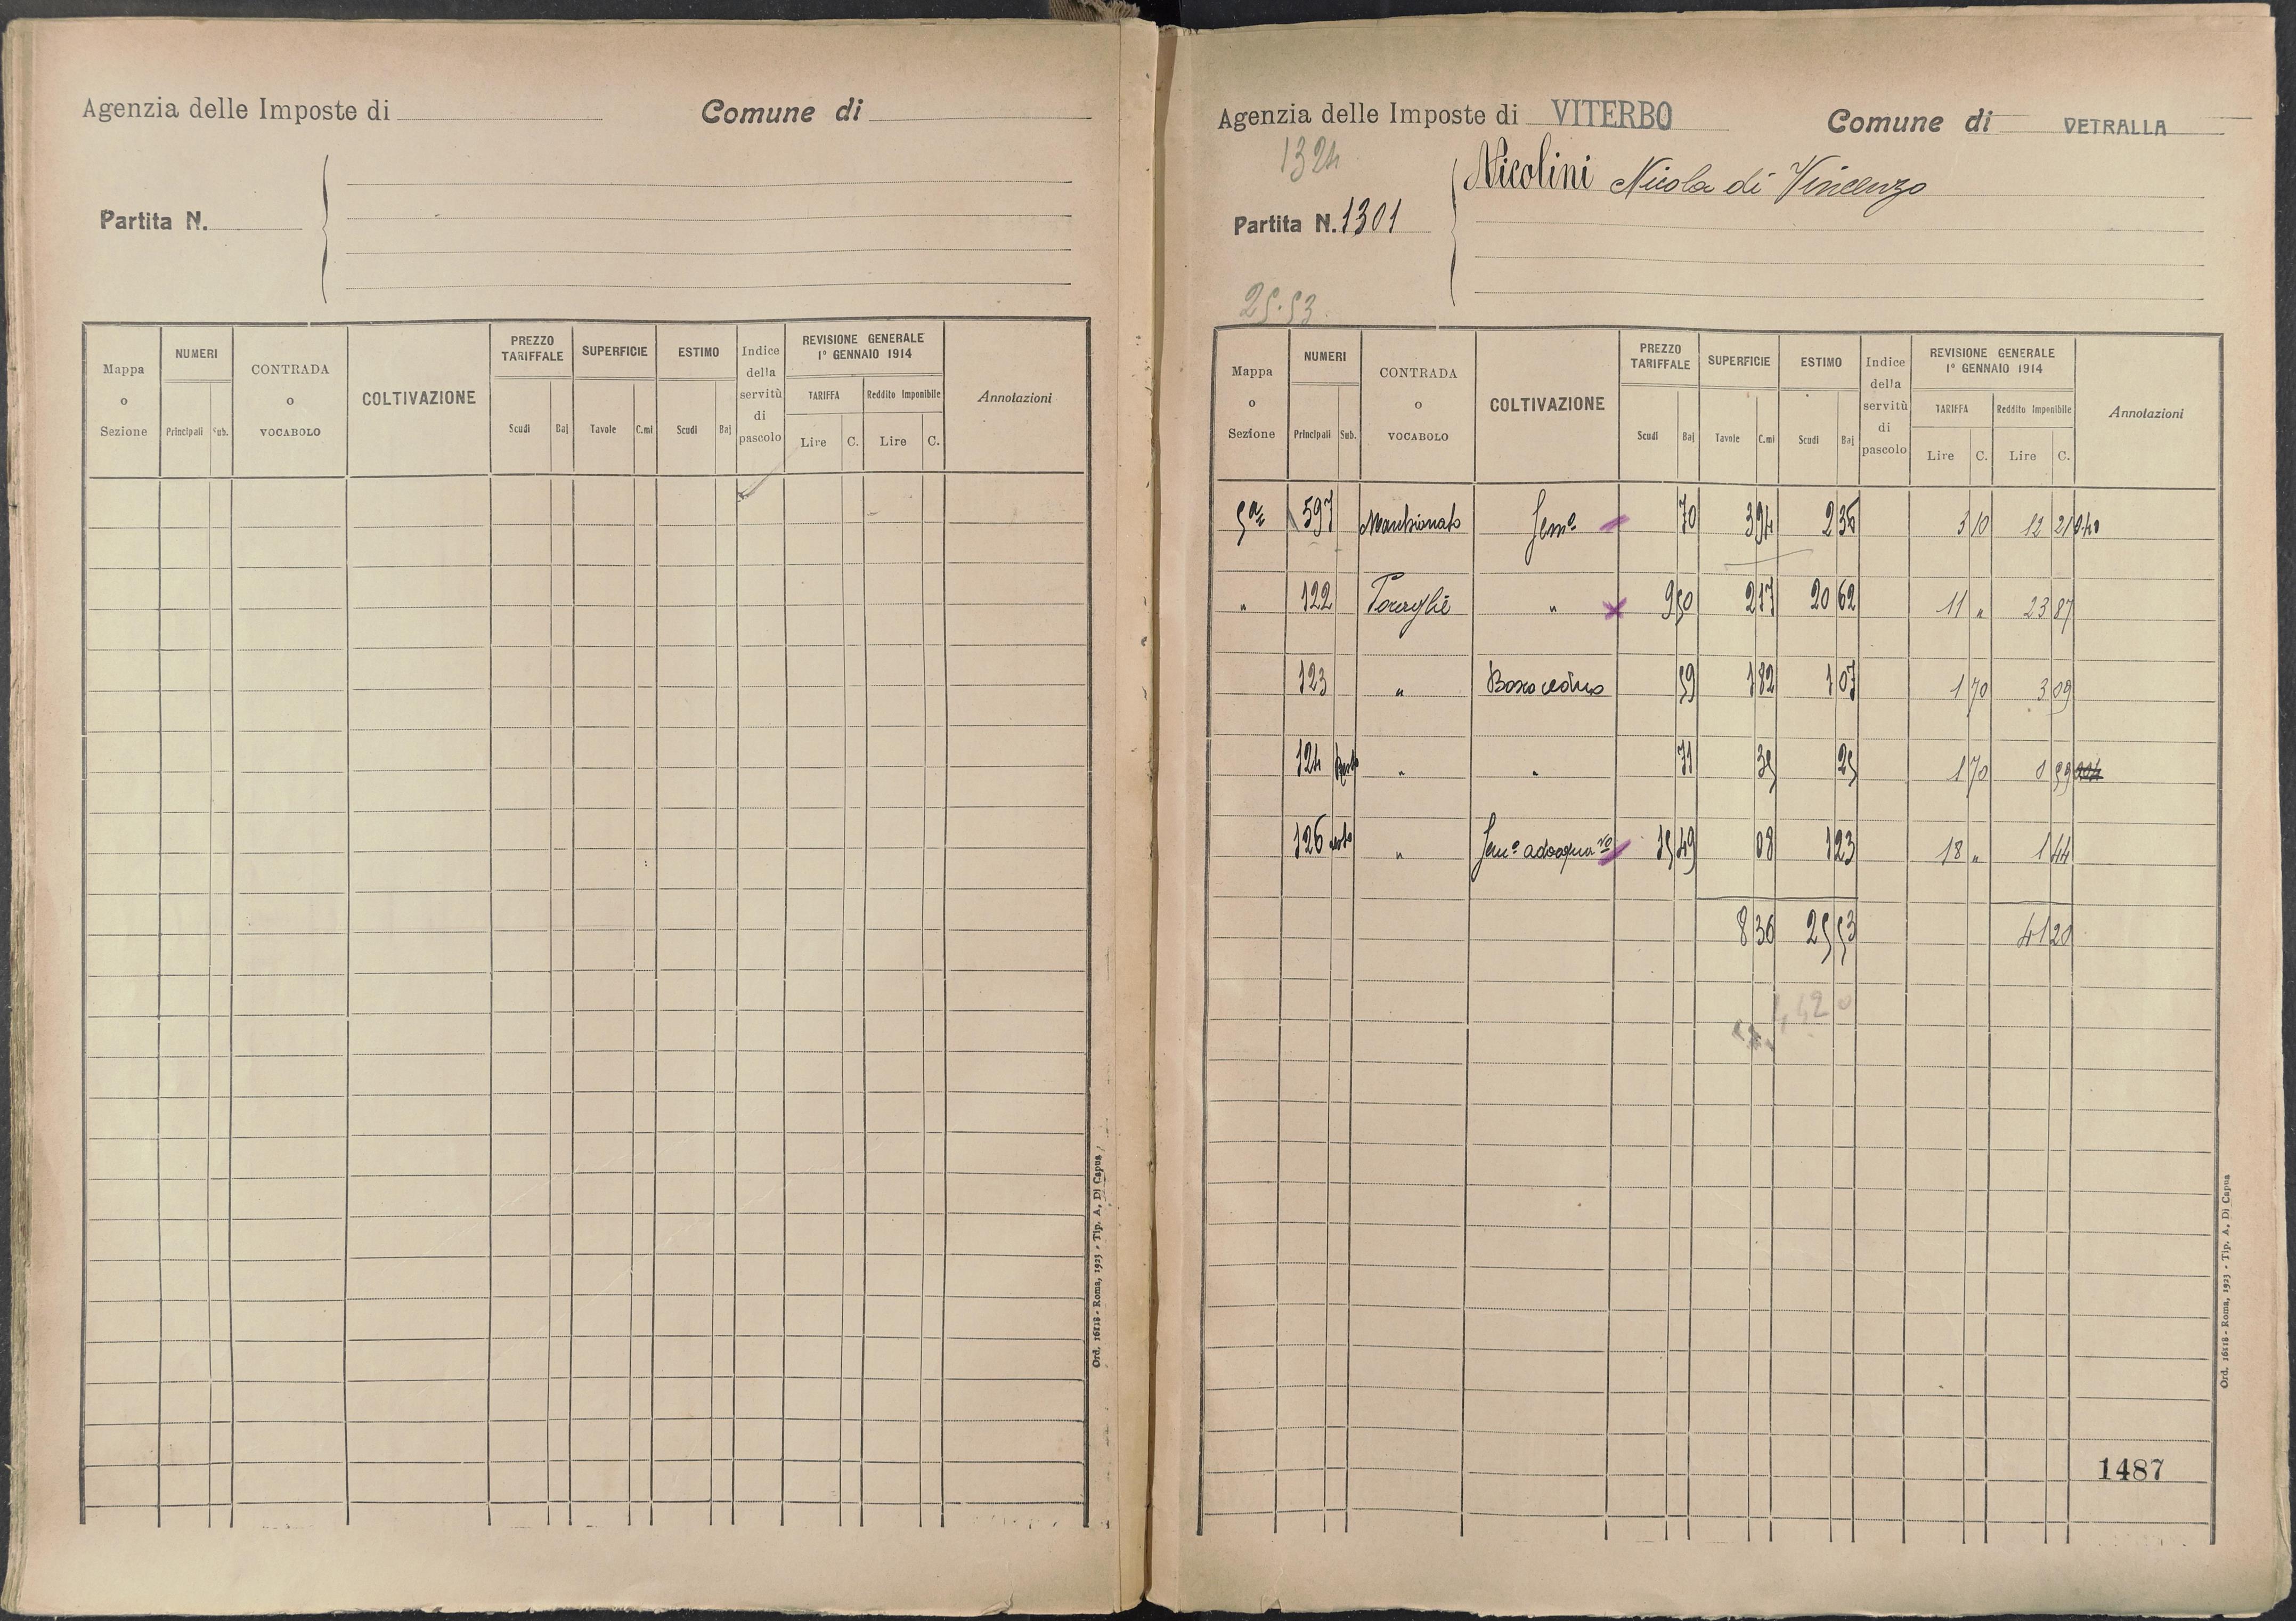 Agenzia delle Imposte di
Comune di
Partita N.
Mappa o Sezione
NUMERI
Principali
Sub.
CONTRADA o VOCABOLO
COLTIVAZIONE
PREZZO TARIFFALE
Scudi
Baj
SUPERFICIE
Tavole
C.mi
ESTIMO
Scudi
Baj
Indice della servitù di pascolo
REVISIONE GENERALE 1° GENNAIO 1914
TARIFFA
Lire
C.
Reddito Imponibile
Lire
C.
Annotazioni
Ord. 16118 - Roma, 1923 - Tip. A. Di Capua
Agenzia delle Imposte di VITERBO
Comune di VETRALLA
1324
Nicolini Nicola di Vincenzo
Partita N. 1301
25.53
Mappa o Sezione
NUMERI
Principali
Sub.
CONTRADA o VOCABOLO
COLTIVAZIONE
PREZZO TARIFFALE
Scudi
Baj
SUPERFICIE
Tavole
C.mi
ESTIMO
Scudi
Baj
Indice della servitù di pascolo
REVISIONE GENERALE 1° GENNAIO 1914
TARIFFA
Lire
C.
Reddito Imponibile
Lire
C.
Annotazioni
5a 597 Sem° 70 3 94 2 36 3 10 12 21
" 122 " 9 50 2 17 20 62 11 " 23 87
123 " Bosco ceduo 59 1 82 1 07 1 70 3 09
124 " " 71 35 25 1 70 0 59
126 " Sem° adacqua vo 15 49 08 1 23 18 " 1 44
8 36 25 53 41 20
1487
Ord. 16118 - Roma, 1923 - Tip. A. Di Capua